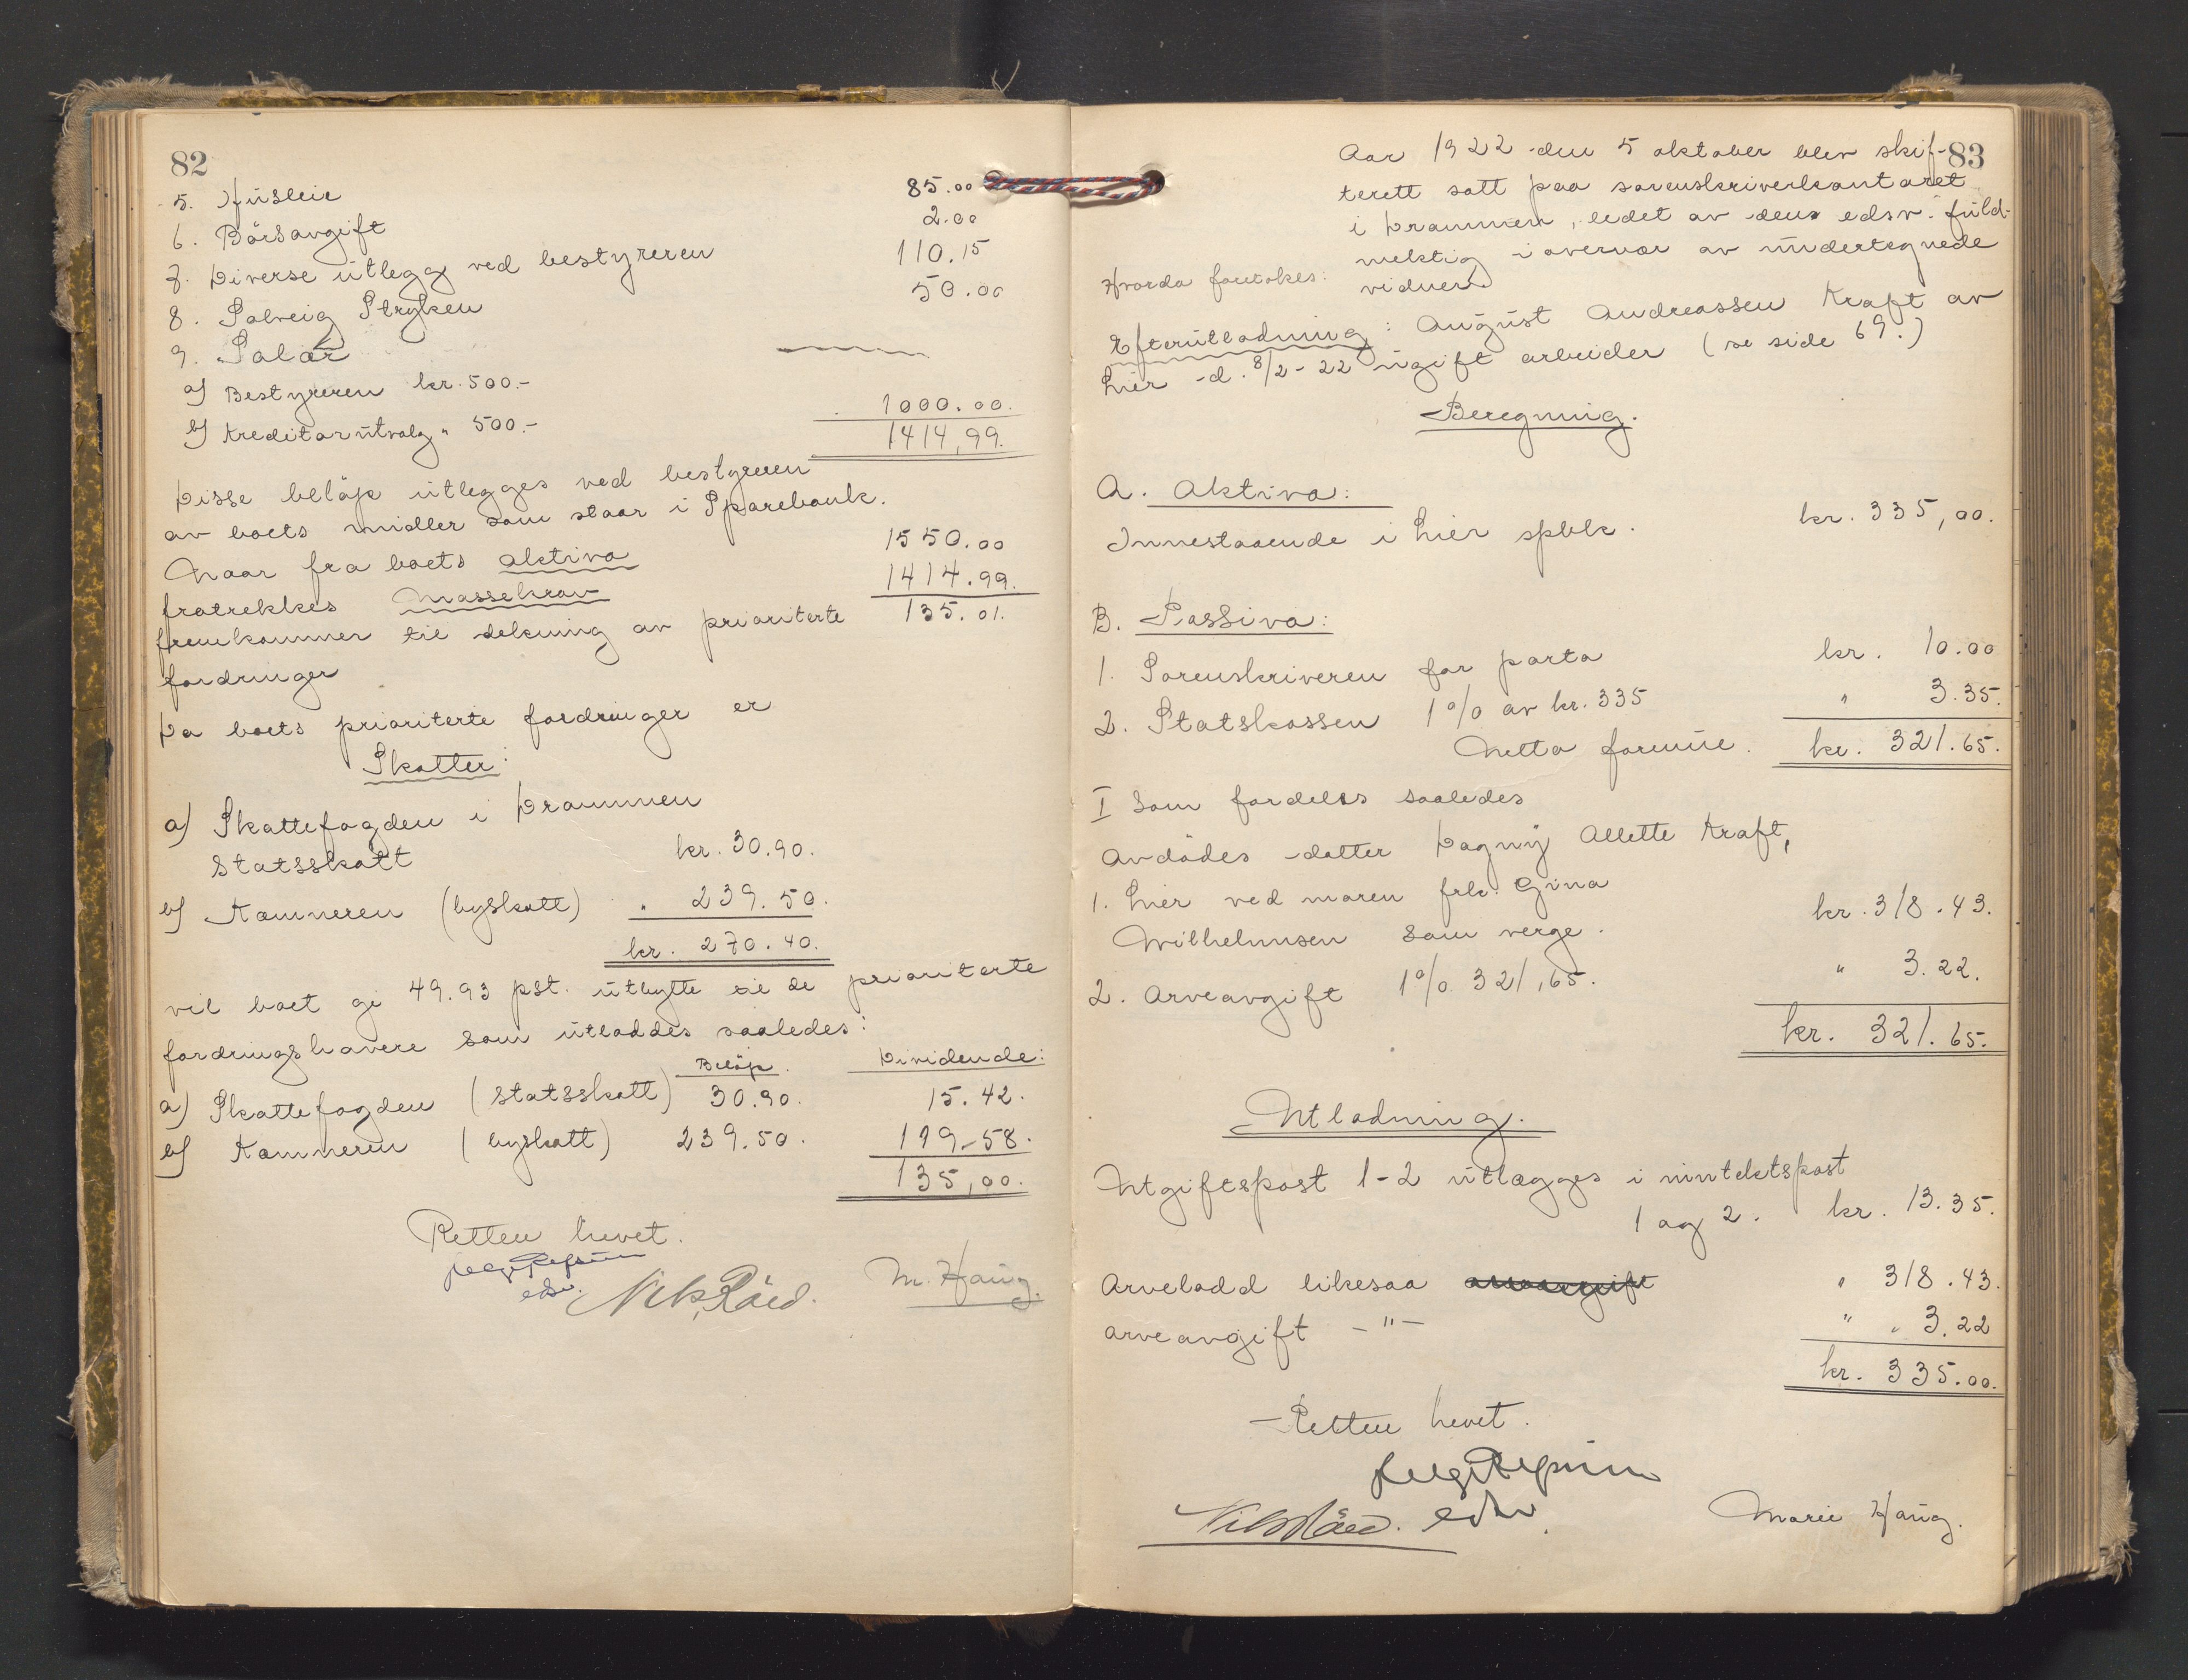 82
5. Husleie 85.00
6. Börsavgift 2.00
7. Diverse utlegg ved bestyreren 110.15
8. Solveig Stryken 50.00
9. Salær
a) Bestyreren kr. 500.-
b) Kreditorutvalg " 500.- 1000.00.
1414,99.
Disse beløp utlegges ved bestyreren
av boets midler som staar i Sparebank.
Naar fra boets aktiva 1550.00
fratrekkes Massekrav 1414.99.
fremkommer til dekning av prioriterte 135.01.
fordringer
Da boets prioriterte fordringer er
Skatter:
a) Skattefogden i Drammen
Statsskatt kr. 30.90.
b) Kæmneren (byskatt) " 239.50.
kr. 270.40.
vil boet gi 49.93 pst. utbytte til de prioriterte
fordringshavere som utloddes saaledes:
Beløp. Dividende:
a) Skattefogden (statsskatt) 30.90. 15.42.
b) Kæmneren (byskatt) 239.50. 119-58.
135,00.
Retten hevet.
edsv.
Nils Råed. M. Haug.
83
Aar 1922 den 5 oktober blev skif-
terett satt paa sorenskriverkontoret
i Drammen, ledet av dens edsv. fuld-
mektig i overvær av undertegnede
Hvorda foretokes: vidner.
Efterutlodning: August Andreassen Kraft av
hier d. 8/2-22 ugift arbeider (se side 69.)
Beregning.
A. Aktiva:
Innestaaende i hier spbk. kr. 335,00.
B. Passiva:
1. Sorenskriveren for porto kr. 10.00
2. Statskassen 1 % av kr. 335 " 3.35.
Netto formue. kr. 321.65.
I Som fordeles saaledes
Avdödes datter Dagny Alette Kraft,
1. hier ved moren frk. Gina
Wilhelmsen som verge. kr. 318.43.
2. Arveavgift 1% 321,65. " 3.22.
kr. 321.65.
Utlodning.
Utgiftspost 1-2 utlægges i inntektspost
1 og 2. kr. 13.35.
Arvelodd likesaa arveavgift " 318.43.
arveavgift -"- " " 3.22
kr. 335.00.
Retten hevet.
Nils Råed. edsv. Marie Haug.